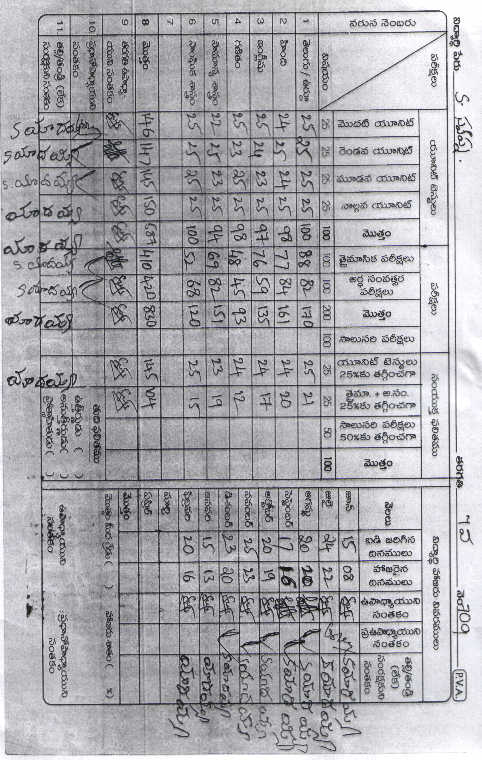 విద్యార్థి పేరు S. తరగతి 7 వ నెం 709 (PVA)
వరుస నెంబరు పరీక్షలు యూనిట్ టెస్టులు పరీక్షలు సంయుక్త ఫలితము
విషయం మొదటి యూనిట్ రెండవ యూనిట్ మూడవ యూనిట్ నాల్గవ యూనిట్ మొత్తం త్రైమాసిక పరీక్షలు అర్ధ సంవత్సర పరీక్షలు మొత్తం సాలుసరి పరీక్షలు యూనిట్ టెస్టులు 25%కు తగ్గించగా త్రైమా. + అ.సం. 25%కు తగ్గించగా సాలుసరి పరీక్షలు 50%కు తగ్గించగా మొత్తం
25 25 25 25 100 100 100 200 100 25 25 50 100
1 తెలుగు / ఉర్దూ 25 25 25 25 100 88 82 170 25 21
2 హింది 24 25 24 25 98 77 84 161 24 20
3 ఇంగ్లీషు 25 24 23 25 97 76 59 135 24 17
4 గణితం 25 23 25 25 98 48 45 93 24 12
5 సామాన్య శాస్త్రం 22 25 23 25 94 69 82 151 23 19
6 సాంఘిక శాస్త్రం 25 25 25 25 100 52 68 120 25 15
7
8 మొత్తం 146 147 145 150 587 410 420 830 145 104
9 తరగతి ఉపాధ్యాయుని సంతకం
10 ప్రధానోపాధ్యాయుని సంతకం
11 తల్లి/తండ్రి (లేక) సంరక్షకుని సంతకం
S యాదయ్య
S యాదయ్య
S. యాదయ్య
యాదయ్య
యాదయ్య
S. యాదయ్య
S యాదయ్య
యాదయ్య
యాదయ్య
తుది ఫలితము
ఉత్తీర్ణుడు ( )
అనుత్తీర్ణుడు ( )
విద్యార్థి హాజరు వివరములు
నెలలు బడి జరిగిన దినములు హాజరైన దినములు ఉపాధ్యాయుని సంతకం ప్ర.ఉపాధ్యాయుని సంతకం తల్లి/తండ్రి (లేక) సంరక్షకుని సంతకం
జూన్ 15 08 S యాదయ్య
జూలై 24 22 S యాదయ్య
ఆగష్టు 20 20 S యాదయ్య
సెప్టెంబర్ 17 16 S యాదయ్య
అక్టోబర్ 20 19 S యాదయ్య
నవంబర్ 25 23 S యాదయ్య
డిసెంబర్ 23 20 S యాదయ్య
జనవరి 15 13 యాదయ్య
ఫిబ్రవరి 20 16 యాదయ్య
మార్చి
ఏప్రిల్
మొత్తం
హాజరు శాతం ( %)
ఉపాధ్యాయుని సంతకం
ప్రధానోపాధ్యాయుని సంతకం